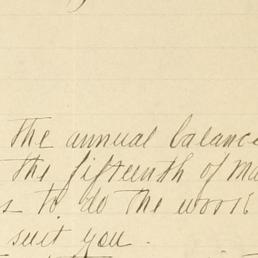 the annual balance
the fifteenth of Ma
s to do the work
suit you.